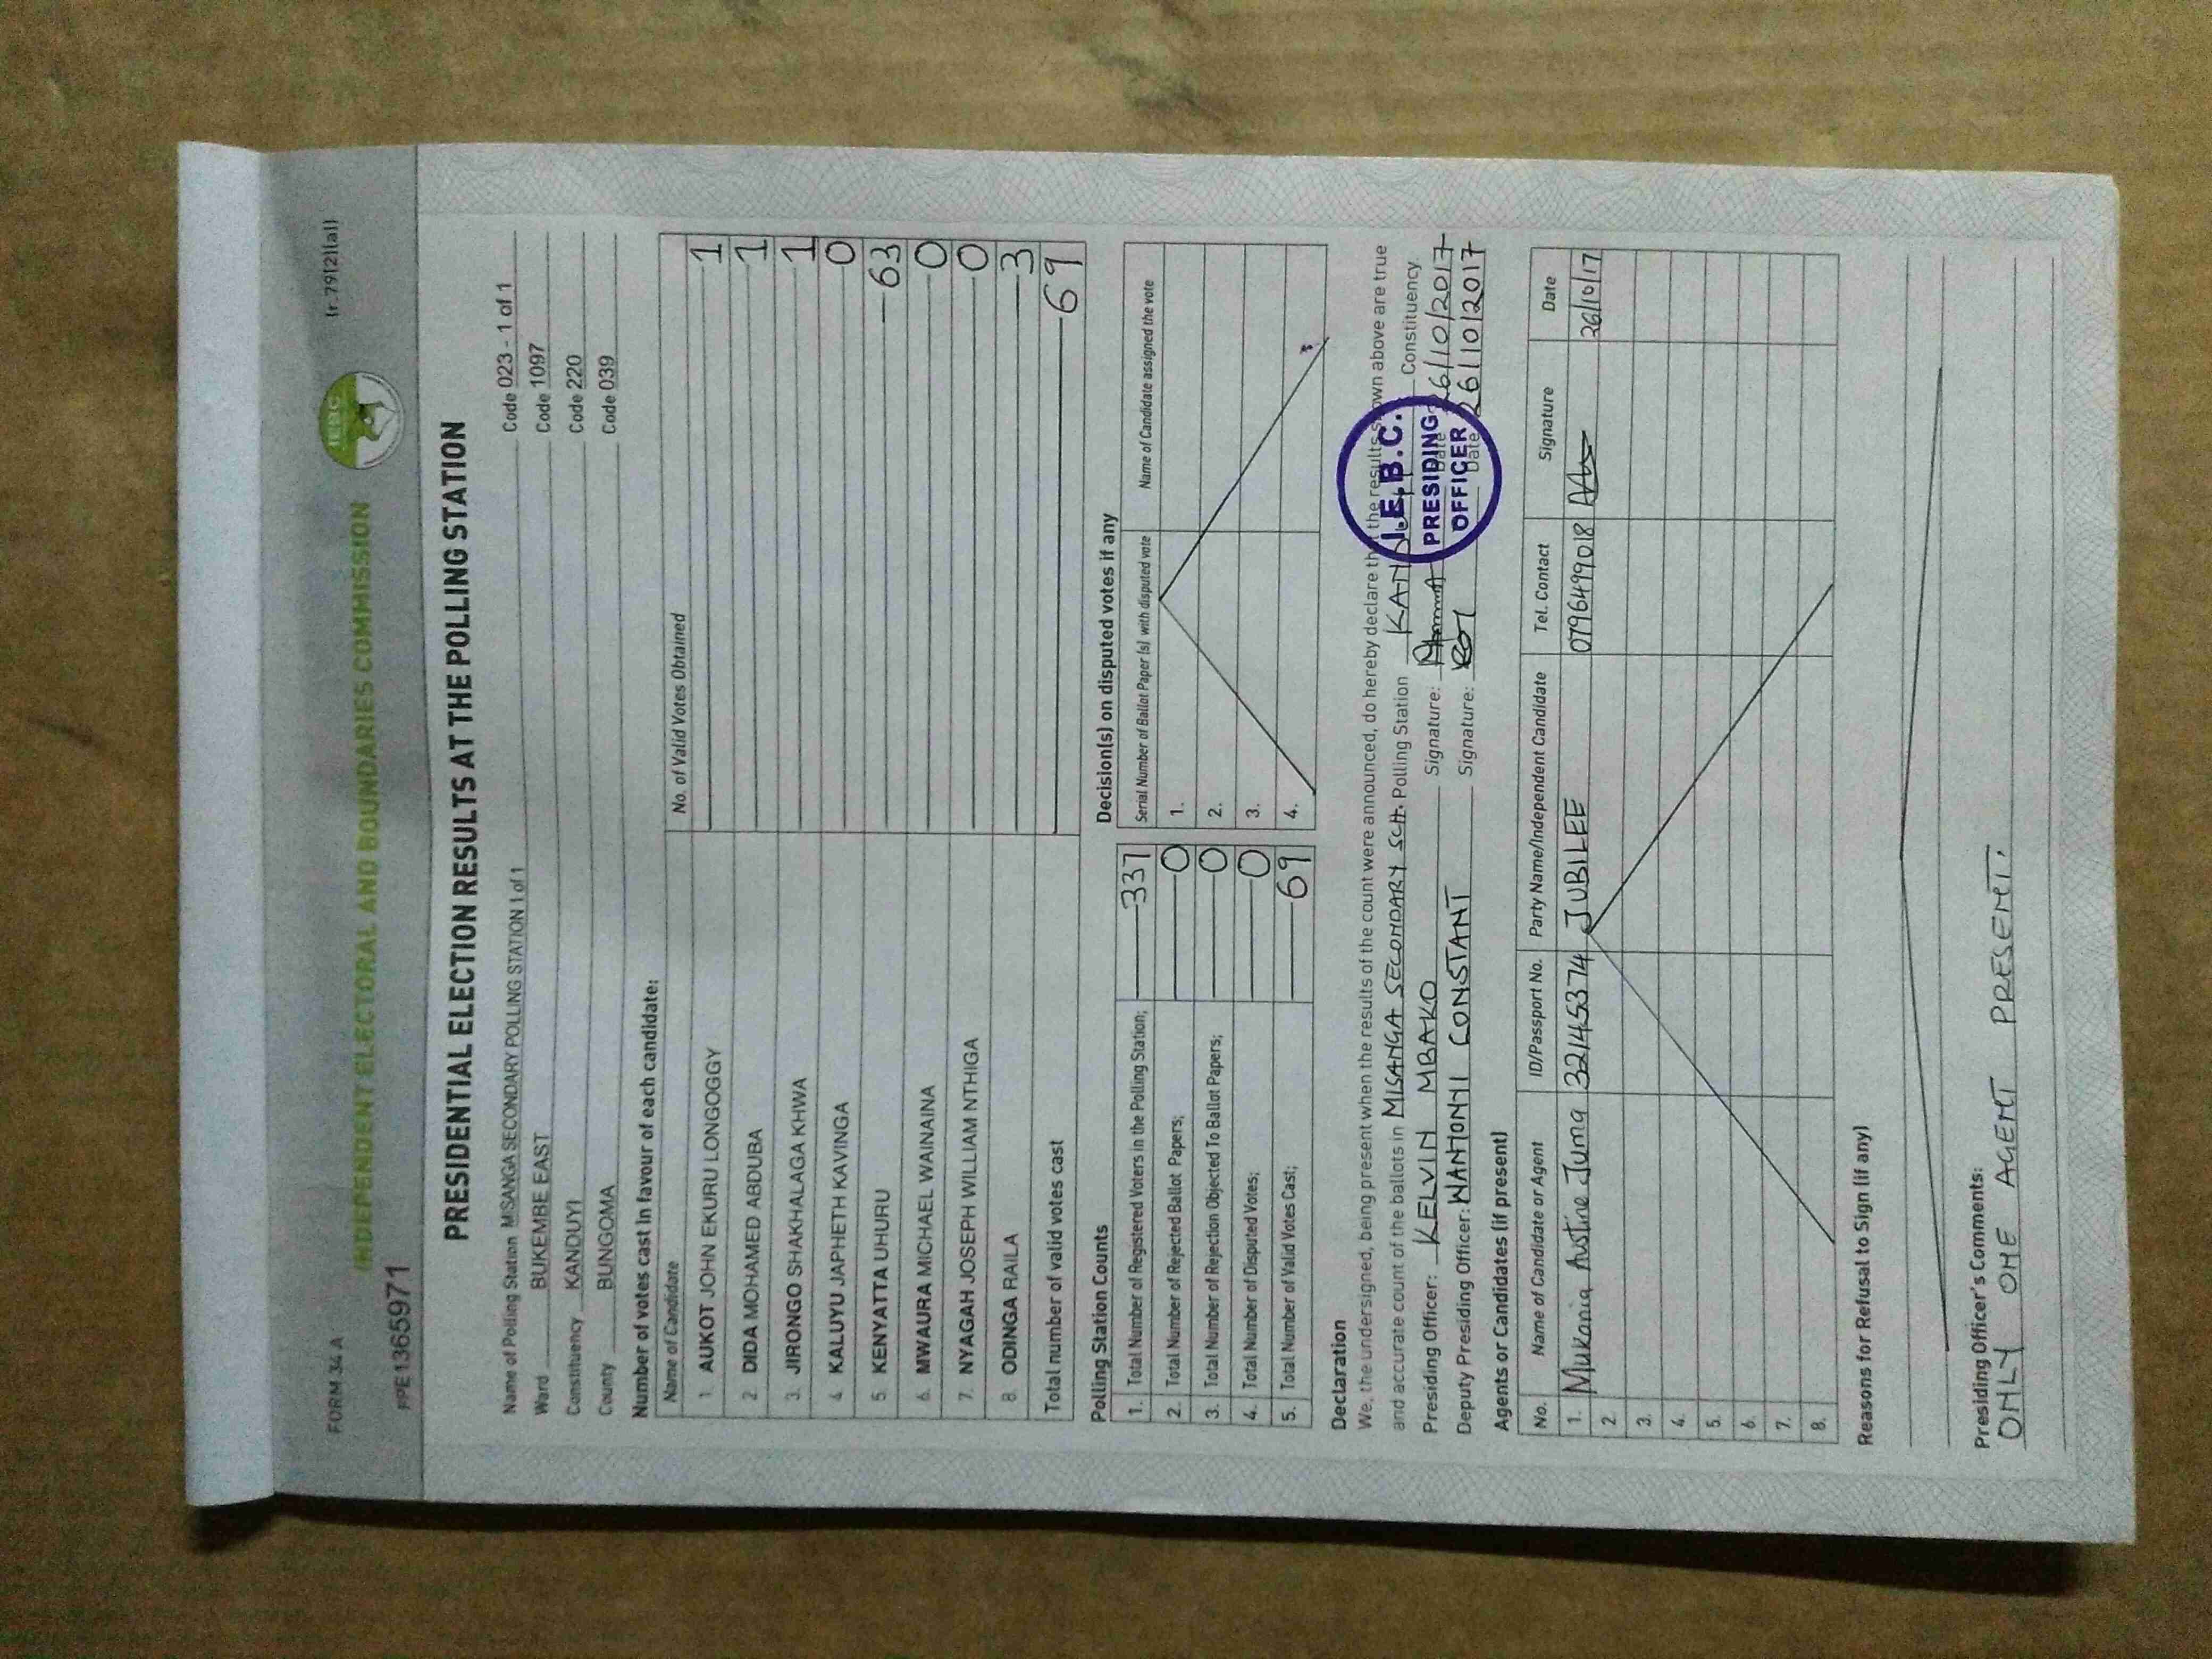 FORM 34 A
(r.79(2)(a))
INDEPENDENT ELECTORAL AND BOUNDARIES COMMISSION
IEBC
PPE1365971
PRESIDENTIAL ELECTION RESULTS AT THE POLLING STATION
Name of Polling Station MISANGA SECONDARY POLLING STATION 1 of 1 Code 023 - 1 of 1
Ward BUKEMBE EAST Code 1097
Constituency KANDUYI Code 220
County BUNGOMA Code 039
Number of votes cast in favour of each candidate:
Name of Candidate No. of Valid Votes Obtained
1. AUKOT JOHN EKURU LONGOGGY 1
2 DIDA MOHAMED ABDUBA 1
3. JIRONGO SHAKHALAGA KHWA 1
4 KALUYU JAPHETH KAVINGA 0
5 KENYATTA UHURU 63
6. MWAURA MICHAEL WAINAINA 0
7. NYAGAH JOSEPH WILLIAM NTHIGA 0
8. ODINGA RAILA 3
Total number of valid votes cast 69
Polling Station Counts
1. Total Number of Registered Voters in the Polling Station; 337
2. Total Number of Rejected Ballot Papers; 0
3. Total Number of Rejection Objected To Ballot Papers; 0
4. Total Number of Disputed Votes; 0
5. Total Number of Valid Votes Cast; 69
Decision(s) on disputed votes if any
Serial Number of Ballot Paper (s) with disputed vote Name of Candidate assigned the vote
1.
2.
3.
4.
Declaration
We, the undersigned, being present when the results of the count were announced, do hereby declare that the results shown above are true
and accurate count of the ballots in MISANGA SECONDARY SCH. Polling Station Constituency.
Presiding Officer: KELVIN MBAKO Signature: Date 26/10/2017
Deputy Presiding Officer: WANYONYI CONSTANT Signature: Date 26/10/2017
I.E.B.C.
PRESIDING
OFFICER
Agents or Candidates (if present)
No. Name of Candidate or Agent ID/Passport No. Party Name/Independent Candidate Tel. Contact Signature Date
1. Mukania Austine Juma 32145374 JUBILEE 0796499018 26/10/17
2.
3.
4.
5.
6.
7.
8.
Reasons for Refusal to Sign (if any)
Presiding Officer's Comments:
ONLY ONE AGENT PRESENT.